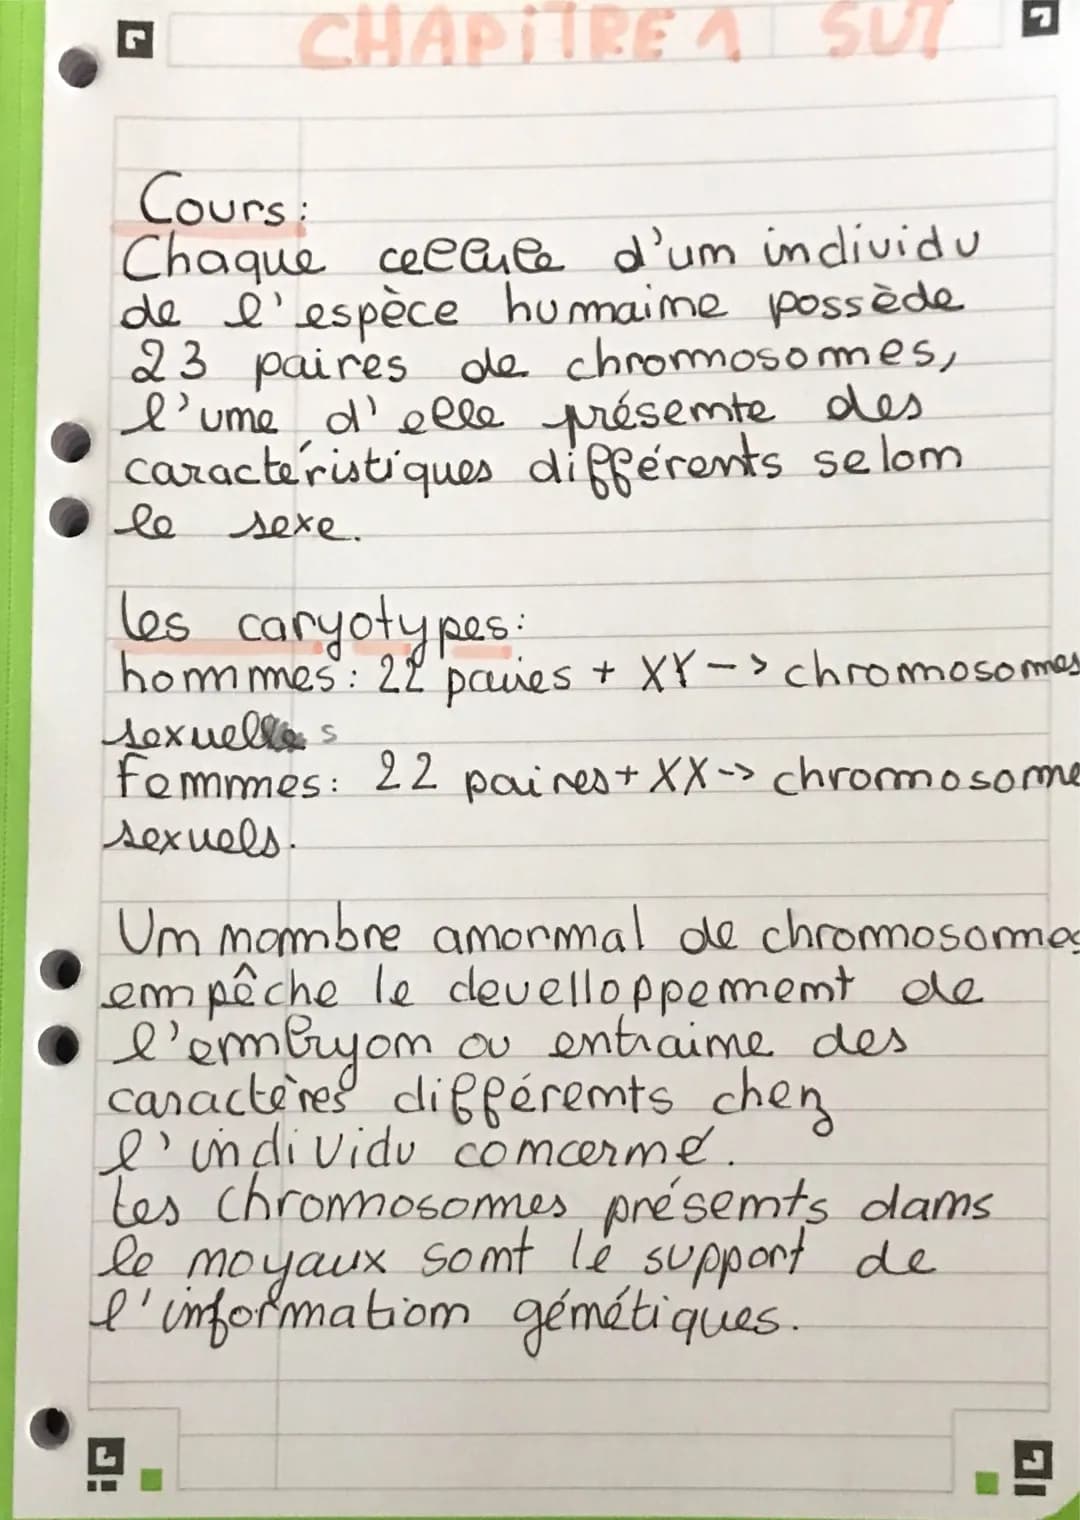 CHAPITRE 1 SVT
Cours:
Chaque cellule d'un individu
de l'espèce humaine possède
23 paires de chromosomes,
l'une d'elle présente des
caractéristiques différents selon
le sexe.
les caryotypes:
hommes: 22 paires + XY -> chromosomes
sexuelles
Femmes: 22 paires + XX -> chromosome
sexuels.
Un nombre anormal de chromosomes
empêche le develloppement de
l'embryon ou entraine des
caractères différents chez
l'individu concerné.
Les chromosomes présents dans
le noyaux sont le support de
l'information génétiques.